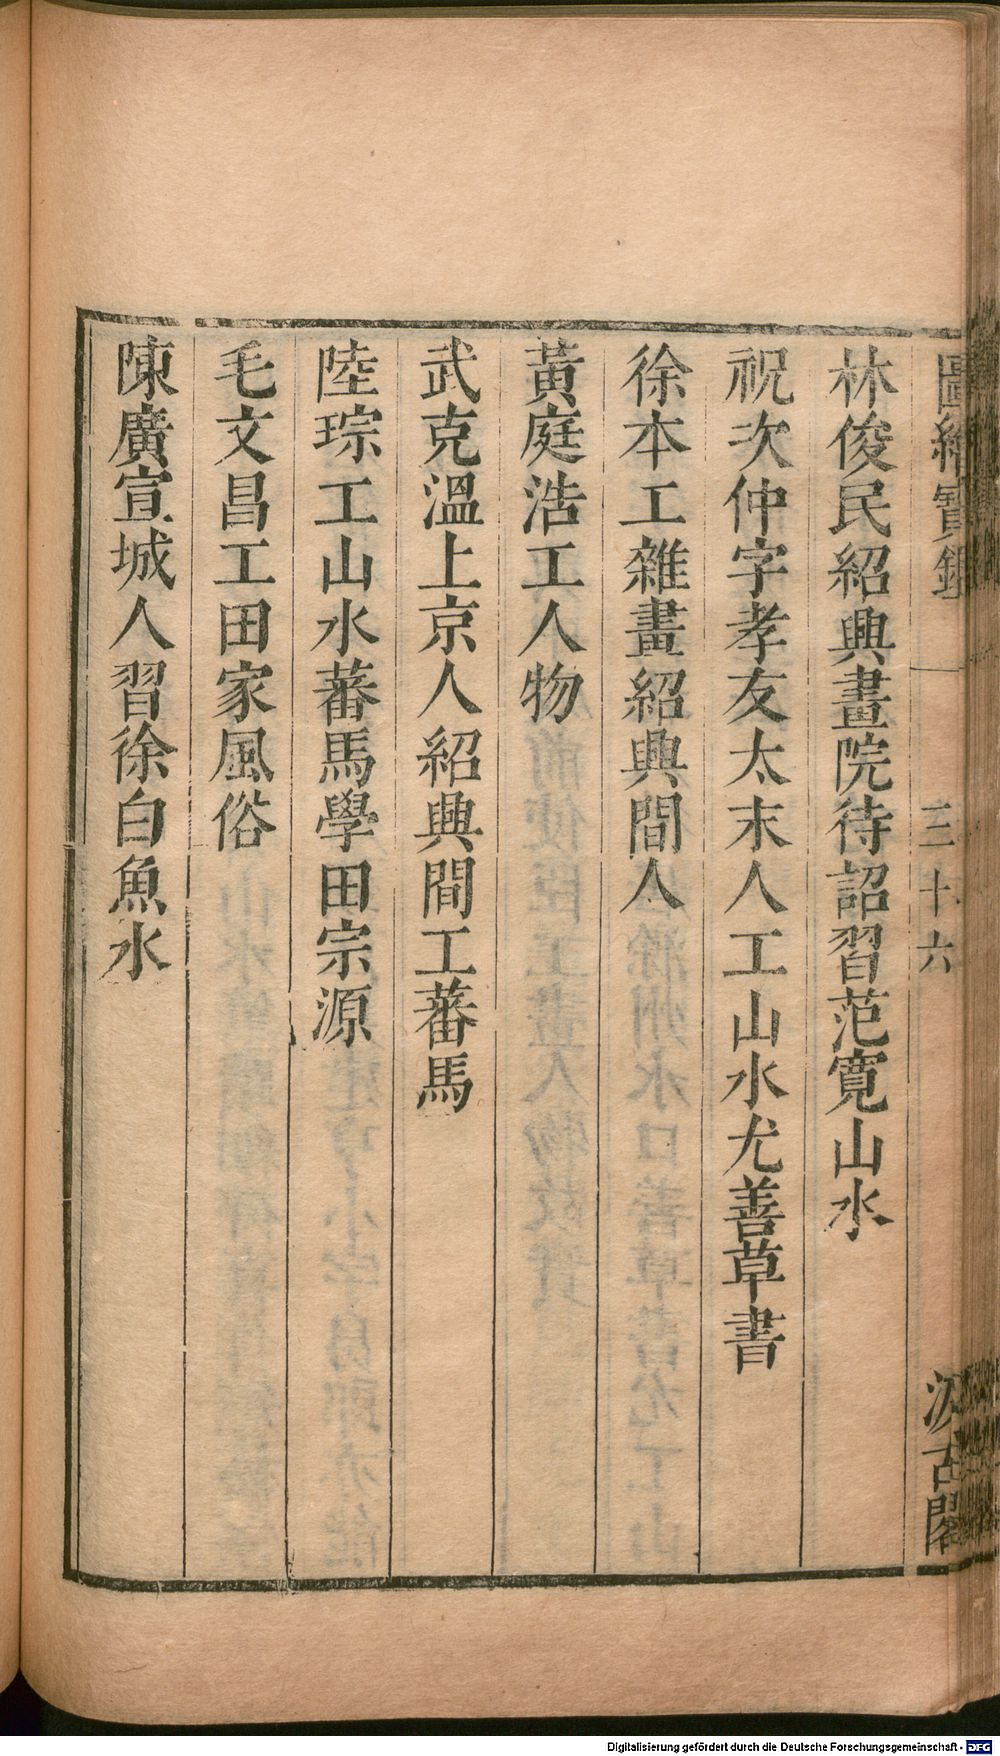 圖繪寶鑑 三十六 汲古閣
林俊民紹興畫院待詔習范寬山水
祝次仲字孝友太末人工山水尤善草書
徐本工雜畫紹興間人
黃庭浩工人物
武克溫上京人紹興間工蕃馬
陸琮工山水蕃馬學田宗源
毛文昌工田家風俗
陳廣宣城人習徐白魚水
Digitalisierung gefördert durch die Deutsche Forschungsgemeinschaft - DFG